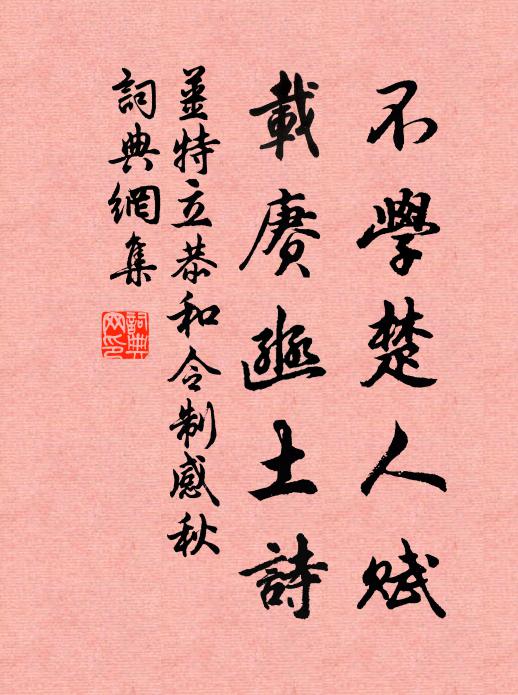 不學楚人賦
載賡豳土詩
薑特立恭和令制感秋
詞典網集
詞典
网印